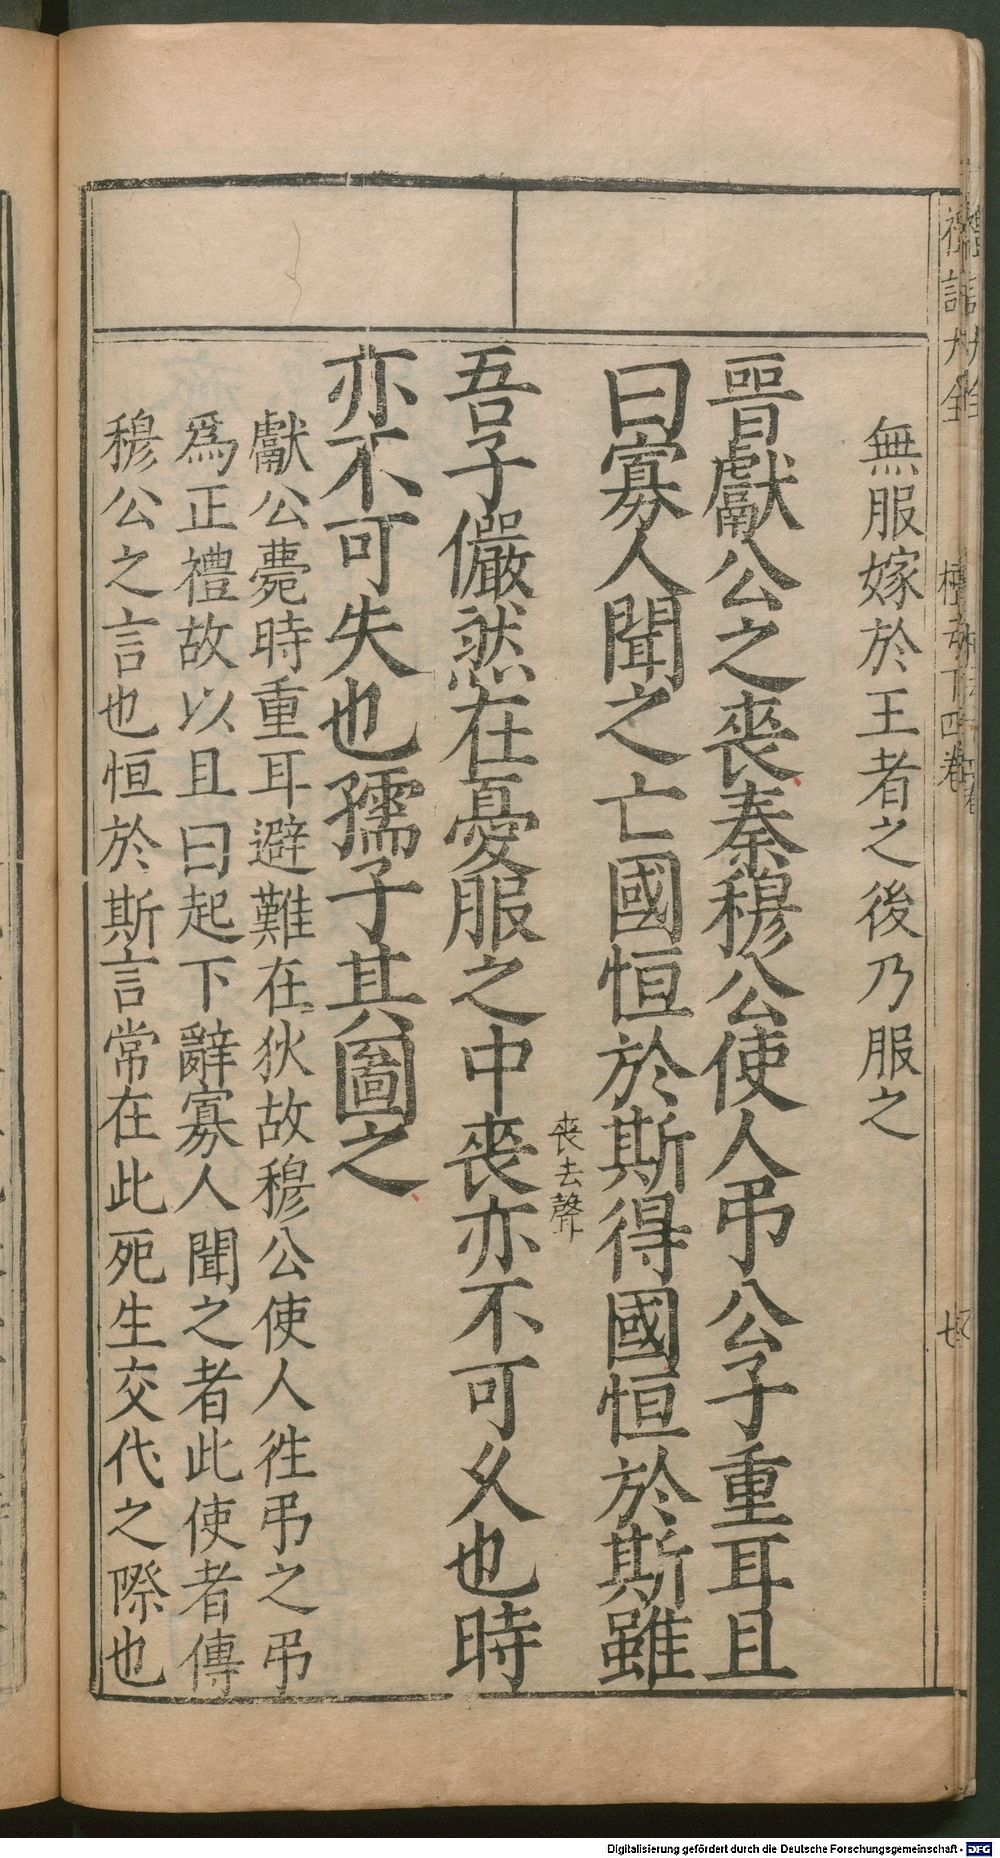 禮記大全 檀弓下四卷 七
無服嫁於王者之後乃服之
晋獻公之喪秦穆公使人弔公子重耳且
曰寡人聞之亡國恒於斯得國恒於斯雖
喪去聲
吾子儼然在憂服之中喪亦不可久也時
亦不可失也孺子其圖之
獻公薨時重耳避難在狄故穆公使人徃弔之弔
爲正禮故以且曰起下辭寡人聞之者此使者傳
穆公之言也恒於斯言常在此死生交代之際也
Digitalisierung gefördert durch die Deutsche Forschungsgemeinschaft - DFG